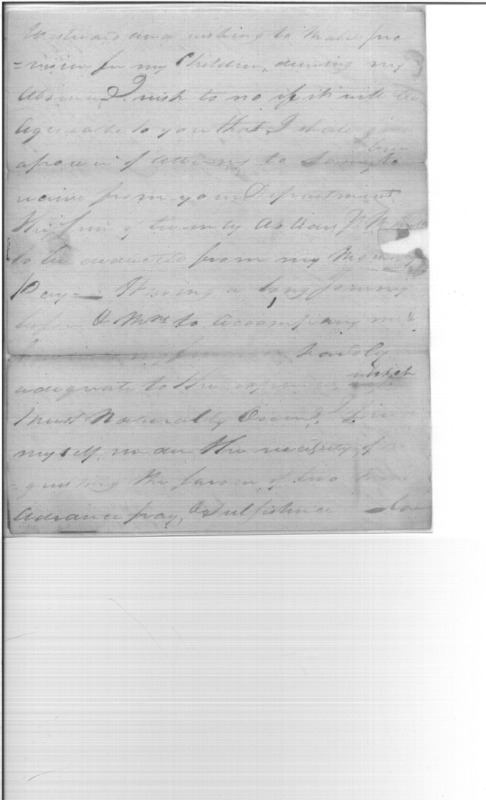 Westward and wishing to make pro
=vision for my Children, during my
Absence I wish to no if it will be
Agreeable to you that I should give
a power of Attorney to Some one to
receive from your Department
the Sum of twenty dollars P. Month
to be deducted from my Monthly
Pay — Having a long Journey
before & Mrs to accompany me
my hardly
adequate to the expenses which
must Naturally Occur, I
myself under the necessity of
questing the favour of two
Advance pay, & Subsistence